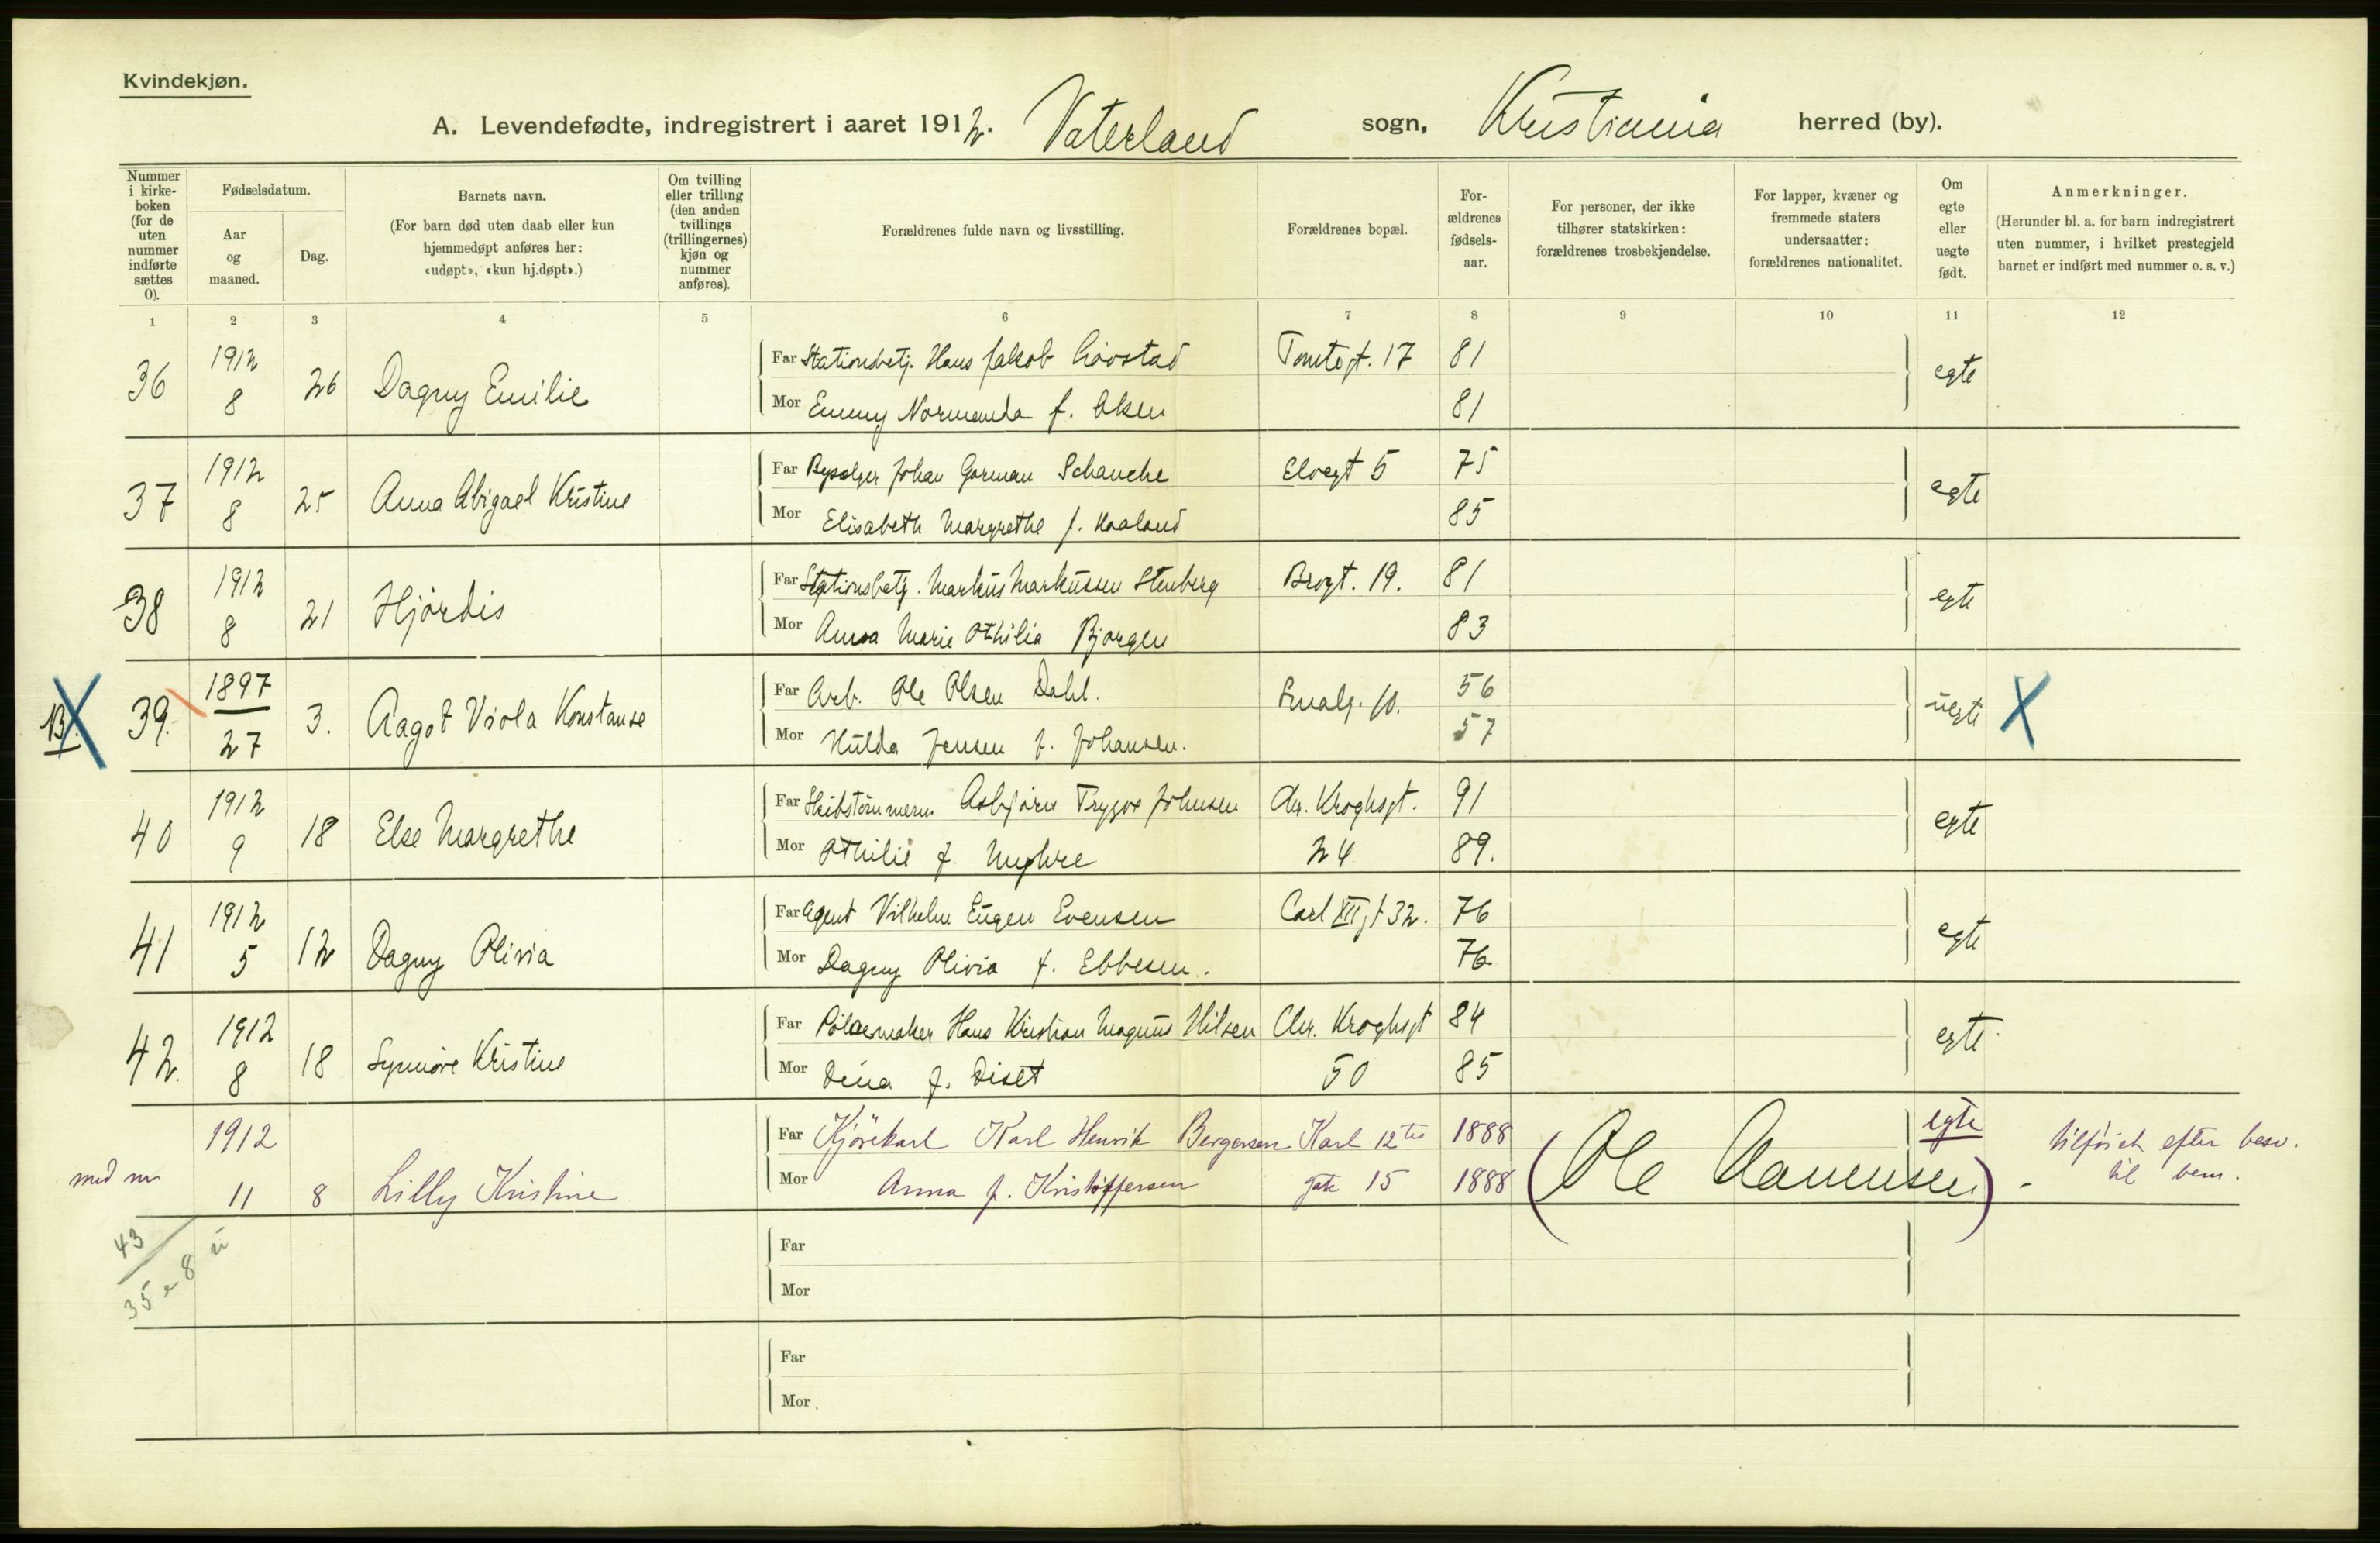 Kvindekjøn.
A. Levendefødte, indregistrert i aaret 1912. Vaterland sogn, Kristiania herred (by).
Nummer i kirke-boken (for de uten nummer indførte sættes 0).
Fødselsdatum.
Aar og maaned.
Dag.
Barnets navn.
(For barn død uten daab eller kun hjemmedøpt anføres her: «udøpt», «kun hj.døpt».)
Om tvilling eller trilling (den anden tvillings (trillingernes) kjøn og nummer anføres).
Forældrenes fulde navn og livsstilling.
Forældrenes bopæl.
For-ældrenes fødsels-aar.
For personer, der ikke tilhører statskirken: forældrenes trosbekjendelse.
For lapper, kvæner og fremmede staters undersaatter: forældrenes nationalitet.
Om egte eller uegte født.
Anmerkninger.
(Herunder bl. a. for barn indregistrert uten nummer, i hvilket prestegjeld barnet er indført med nummer o. s. v.)
1 2 3 4 5 6 7 8 9 10 11 12
36 1912 8 26 Dagny Emilie Far Stationsbetj. Hans Jakob Lövstad Tomtegt. 17 81 egte
Mor Emmy Normanda f. Olsen 81
37 1912 8 25 Anna Abigael Kristine Far Johan Gorman Schanche Elvegt 5 75 egte
Mor Elisabeth Margrethe f. Haaland 85
38 1912 8 21 Hjördis Far Stationsbetj. Markus Markussen Stenberg Brogt. 19. 81 egte
Mor Anna Marie Othilia Bjorgen 83
39. 1897 27 3. Aagot Viola Konstanse Far Arb. Ole Olsen Dahl. Smalg. 10. 56 uegte X
Mor Hulda Jensen f. Johansen. 57
40 1912 9 18 Else Margrethe Far Skibstömmerm. Asbjörn Trygve Johnsen Chr. Kroghsgt. 91 egte
Mor Othilie f. Myhre 24 89.
41 1912 5 12 Dagny Olivia Far Agent Vilhelm Eugen Evensen Carl XII gt 32. 76 egte
Mor Dagny Olivia f. Ebbesen. 76
42. 1912 8 18 Synnöve Kristine Far Pölsemaker Hans Kristian Magnus Nilsen Chr. Kroghsgt 84 egte
Mor Dina f. Diset 50 85
med nr 1912 11 8 Lilly Kristine Far Kjörekarl Karl Henrik Bergersen Karl 12tes 1888 egte tilföiet efter besv.
Mor Anna f. Kristoffersen gate 15 1888 (Ole Aamensen) - til bem.
43
35 e 8 u
Far
Mor
Far
Mor